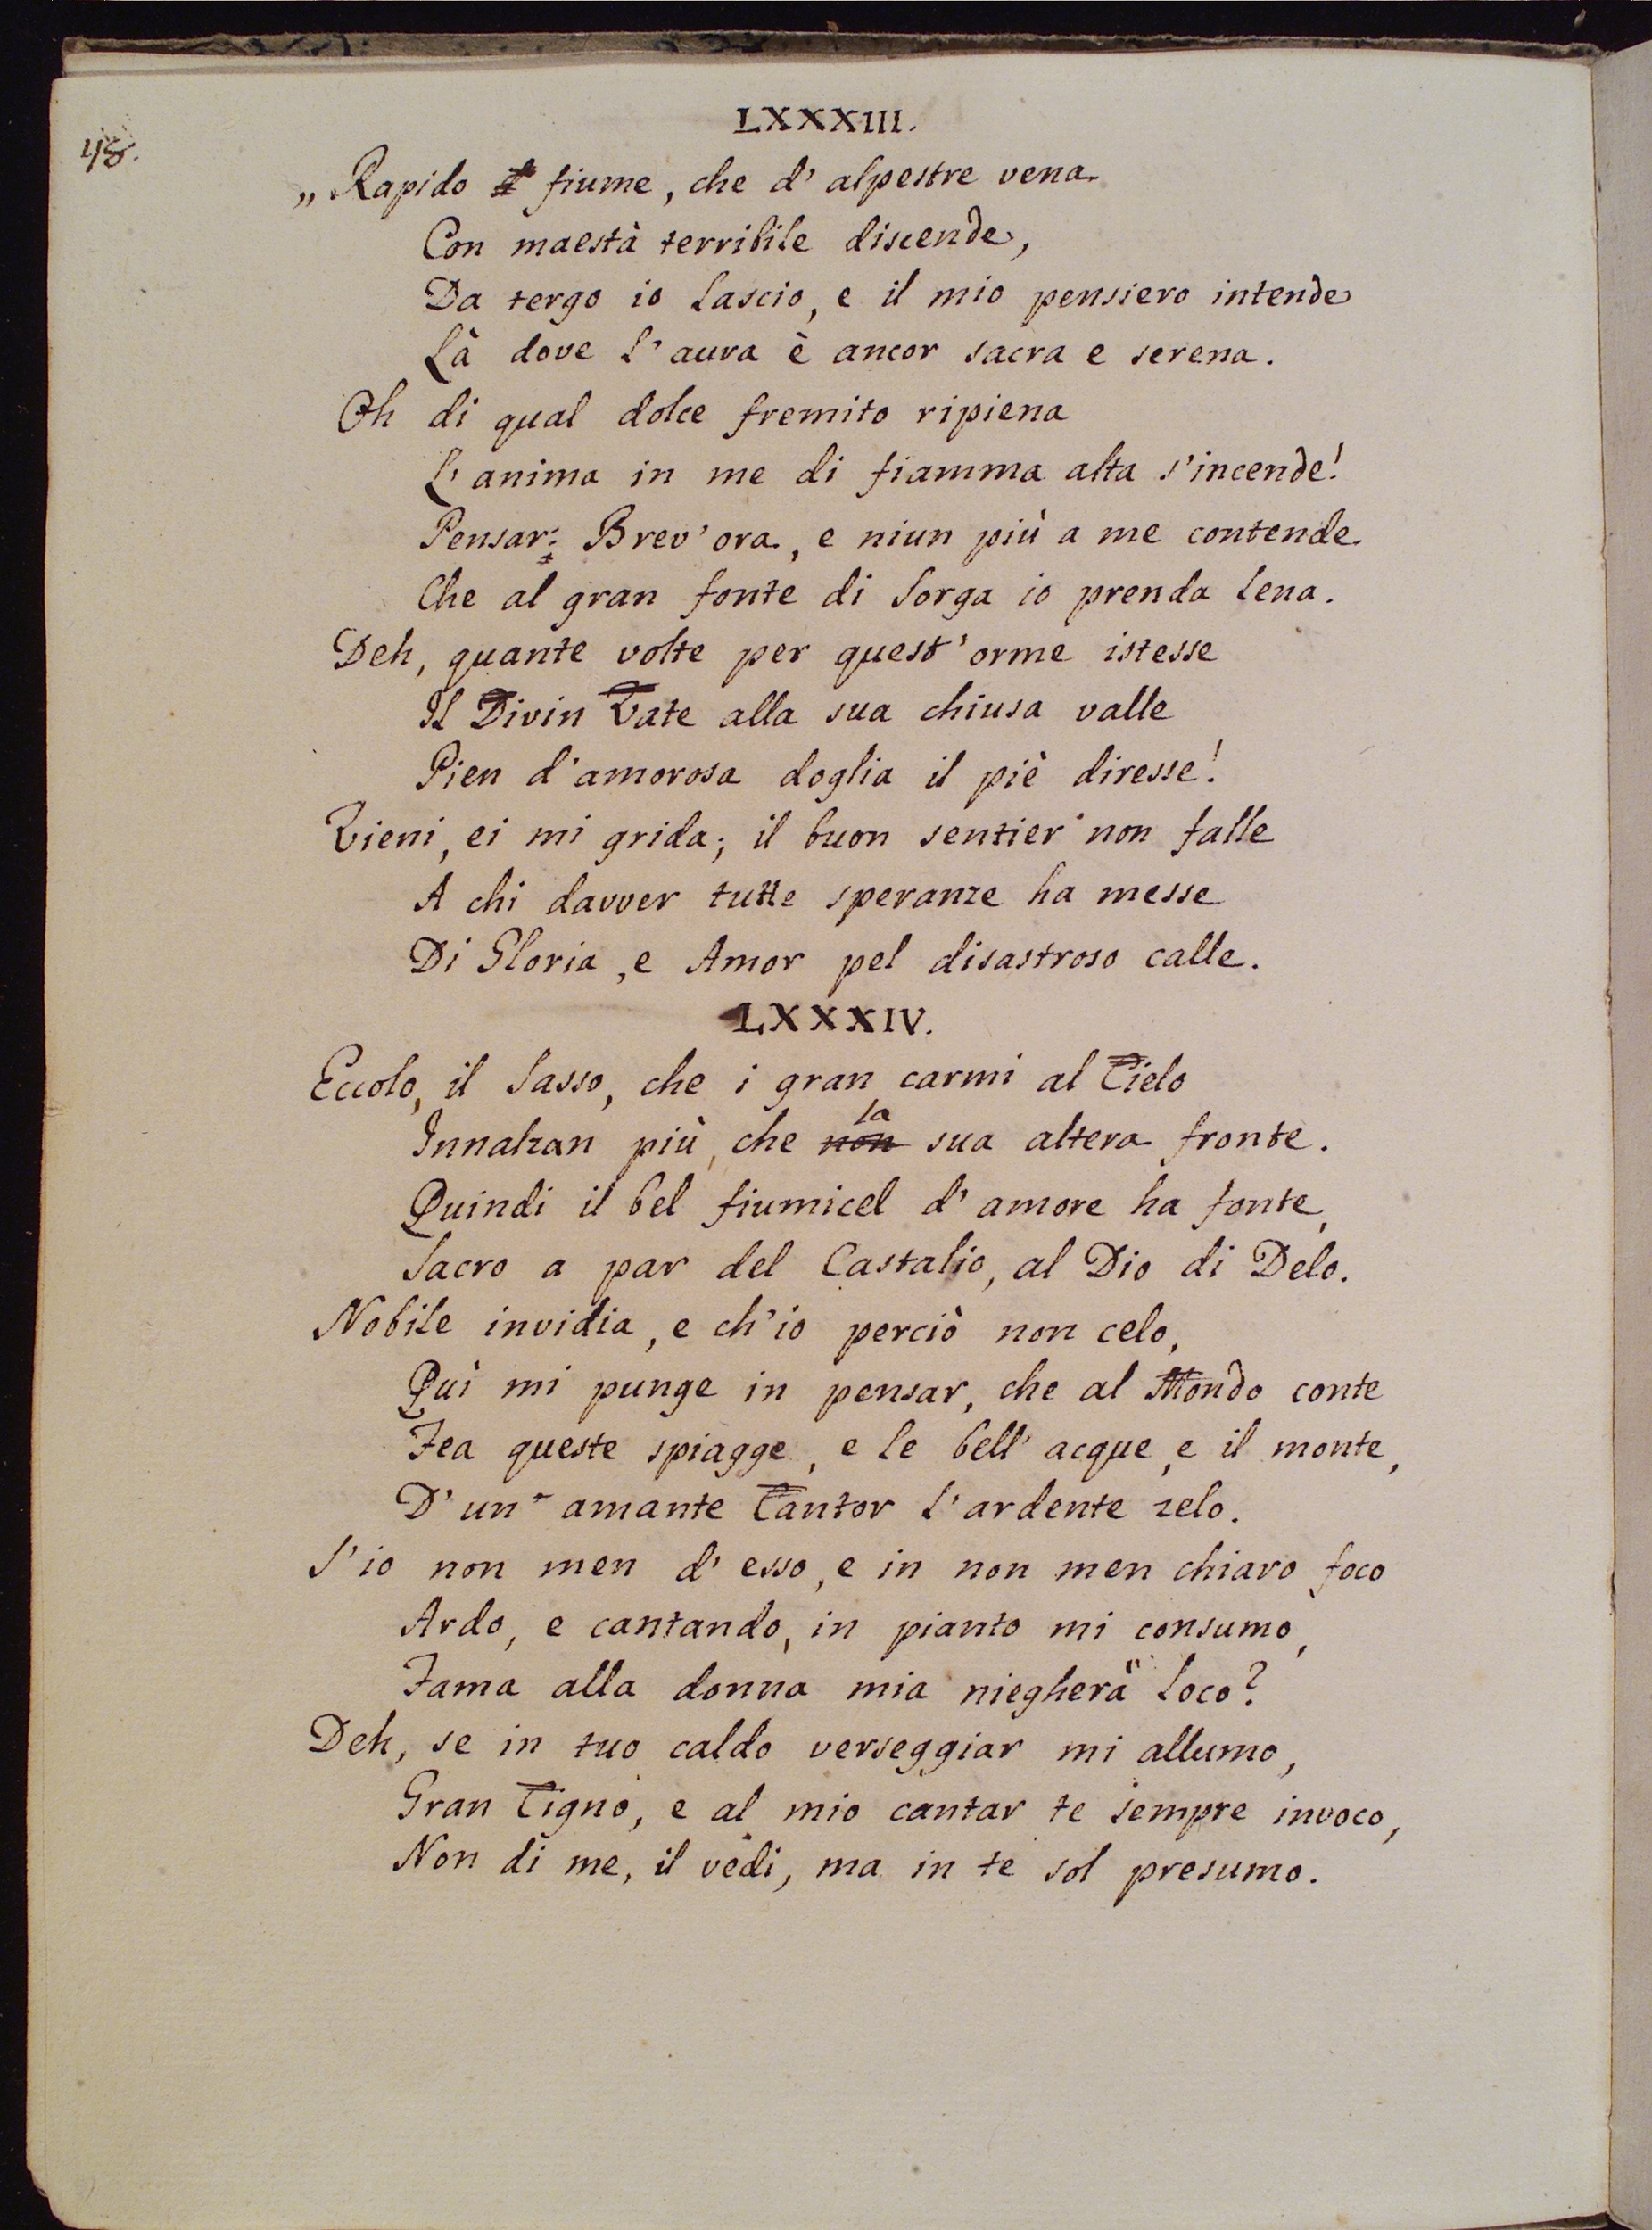 48.
LXXXIII.
„ Rapido fiume, che d' alpestre vena
Con maestà terribile discende,
Da tergo io lascio, e il mio pensiero intende
Là dove l'aura è ancor sacra e serena.
Oh di qual dolce fremito ripiena
L'anima in me di fiamma alta s'incende!
Pensar: Brev'ora, e niun più a me contende
Che al gran fonte di Sorga io prenda lena.
Deh, quante volte per quest'orme istesse
Il Divin Vate alla sua chiusa valle
Pien d'amorosa doglia il piè diresse!
Vieni, ei mi grida; il buon sentier non falle
A chi davver tutte speranze ha messe
Di Gloria, e Amor pel disastroso calle.
LXXXIV.
Eccolo, il Sasso, che i gran carmi al Cielo
Innalzan più, che non la sua altera fronte.
Quindi il bel fiumicel d'amore ha fonte,
Sacro a par del Castalio, al Dio di Delo.
Nobile invidia, e ch'io perciò non celo,
Quì mi punge in pensar, che al Mondo conte
Fea queste spiagge, e le bell' acque, e il monte,
D'un amante Cantor l'ardente zelo.
S'io non men d'esso, e in non men chiaro foco
Ardo, e cantando, in pianto mi consumo,
Fama alla donna mia niegherà loco?
Deh, se in tuo caldo verseggiar mi allumo,
Gran Cigno, e al mio cantar te sempre invoco,
Non di me, il vedi, ma in te sol presumo.